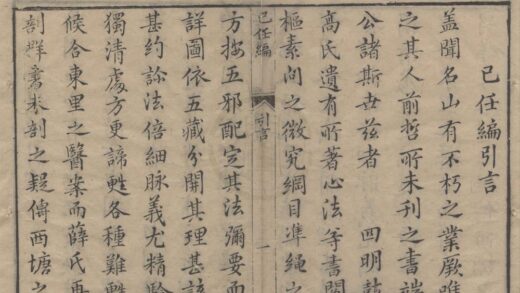 己任編引言
蓋聞名山有不朽之業厥唯
之其人前哲所未刊之書端
公諸斯世茲者 四明
高氏遺有所著心法等書
樞素問之微究綱目準繩之
己任編
引言
一
方按五邪配定其法彌要而
詳圖依五藏分開其理甚
甚約診法倍細脉義尤精
獨清處方更諦甦各種難
候合東里之醫案而薛氏
割群書未剖之疑傳西塘之